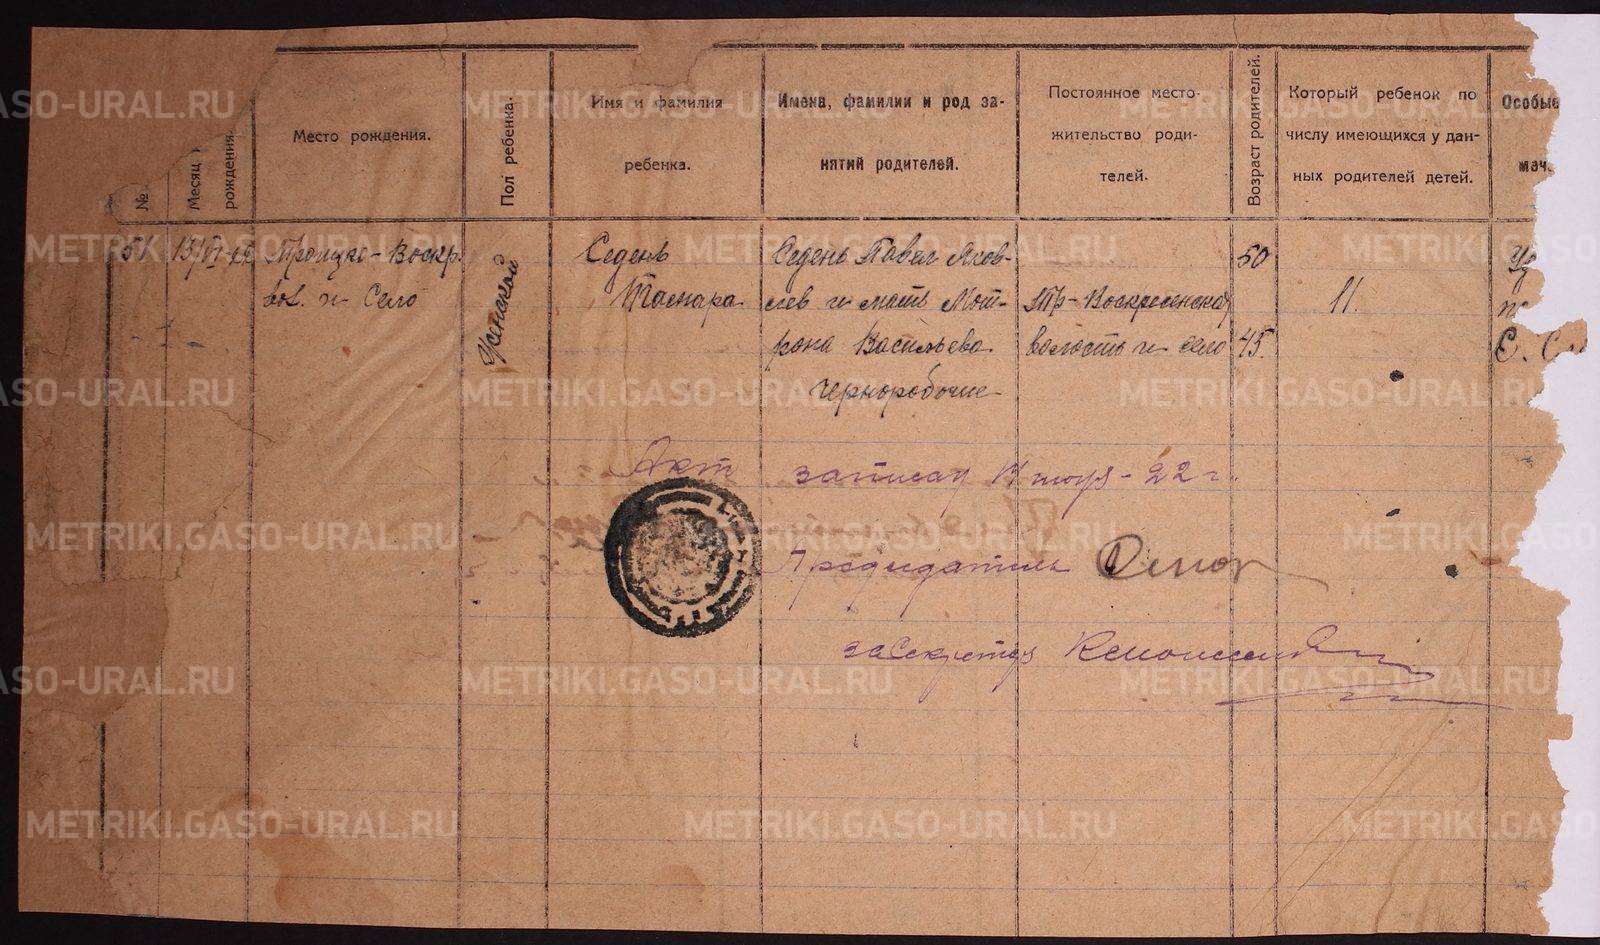 №
Месяц
рождения.
Место рождения.
Пол ребенка.
Имя и фамилия
ребенка.
Имена, фамилии и род за-
нятий родителей.
Постоянное место-
жительство роди-
телей.
Возраст родителей.
Который ребенок по
числу имеющихся у дан-
ных родителей детей.
Особые
51
13/VI-22
Троицко-Воскр.
вол. и село
Женской
Седень
Тамара
Седень Павел Яков-
лев и мать Мот-
рона Васильева
чернорабочие
Тр-Воскресенская
волость и село
50
45.
11.
Акт записан
22 г.
Председатель
за Секретаря
METRIKI.GASO-URAL.RU